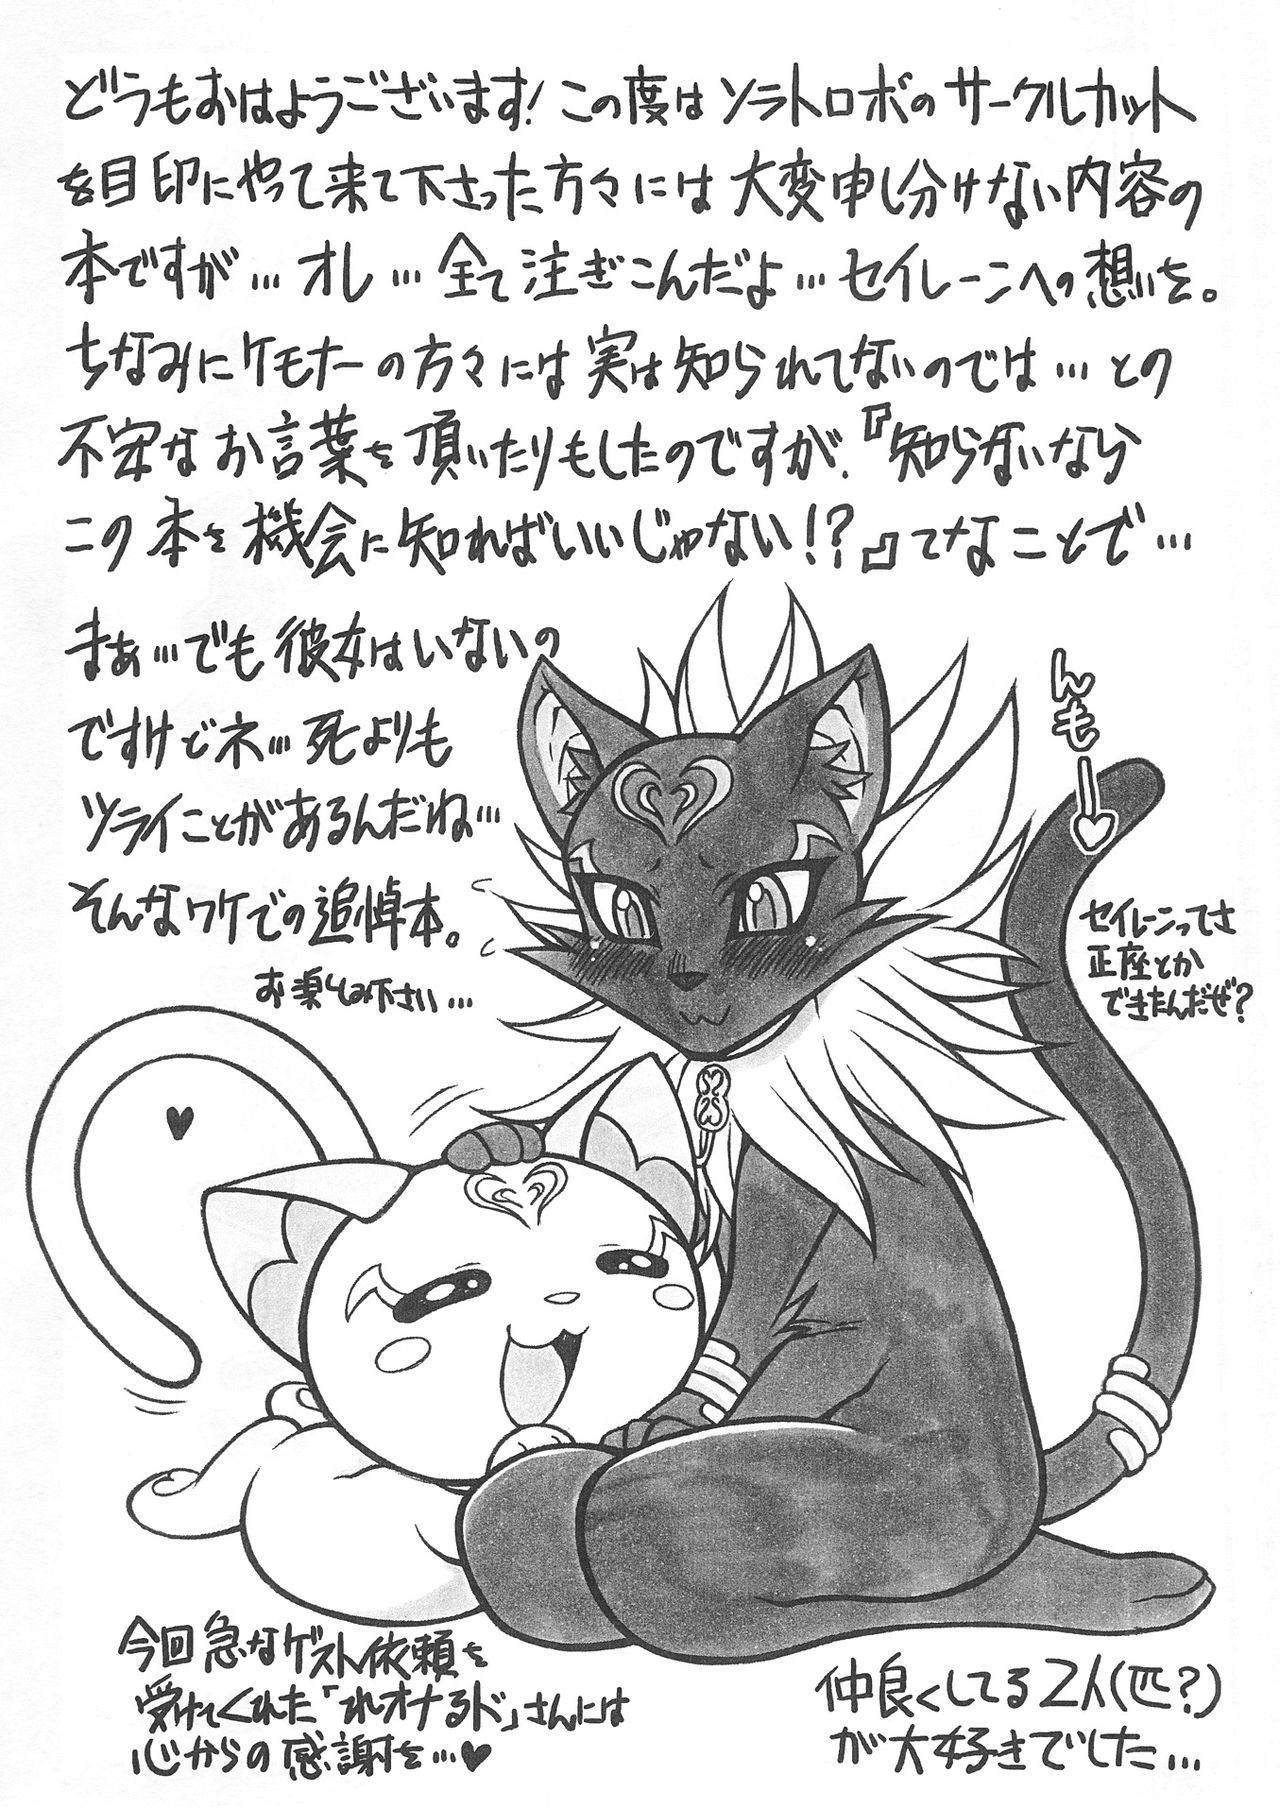 どうもおはようございます!この度はソラトロボのサークルカット
を目印にやって来て下さった方々には大変申し分けない内容の
本ですが…オレ…全て注ぎこんだよ…セイレーンへの想いを。
ちなみにケモナーの方々には実は知られてないのでは…との
不安なお言葉を頂いたりもしたのですが、『知らないなら
この本を機会に知ればいいじゃない!?』てなことで…
まぁ…でも彼女はいないの
ですけどネ…死よりも
ツライことがあるんだね…
そんなワケでの追悼本。
お楽しみ下さい…
んも→♡
セイレーンってさ
正座とか
できたんだぜ?
今回急なゲスト依頼を
受けてくれた「れオナるド」さんには
心からの感謝を…♥
仲良くしてる2人(匹?)
が大好きでした…